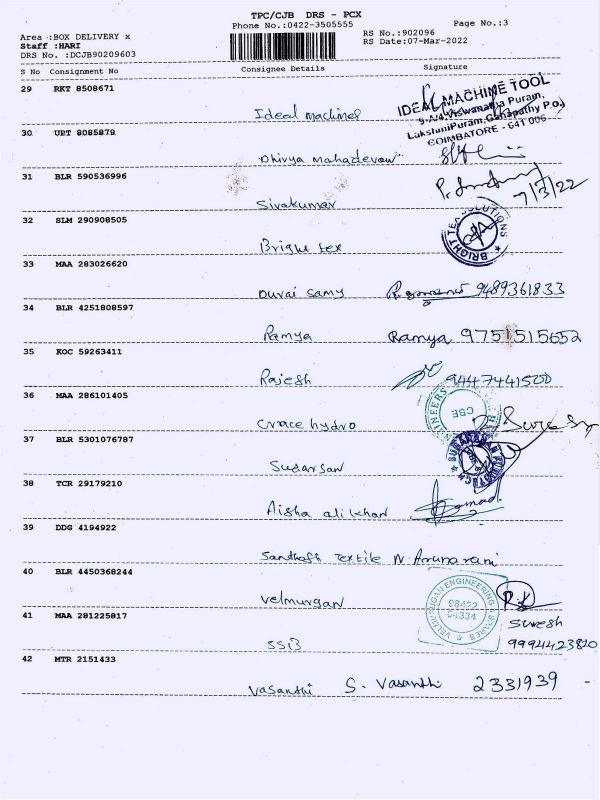 TPC/CJB DRS - PCX
Phone No.:0422-3505555
Page No.:3
Area :BOX DELIVERY x
Staff :HARI
DRS No. :DCJB90209603
RS No.:902096
RS Date:07-Mar-2022
S No Consignment No Consignee Details Signature
29 RKT 8508671
Ideal machines
IDEAL MACHINE TOOL
9-A/4, Viswanatha Puram,
Lakshmi Puram, Ganapathy P.o.,
COIMBATORE - 641 006
30 UPT 8085879
Dhivya mahadevan
31 BLR 590536996
Sivakumar
7/3/22
32 SLM 290908505
Bright tex
BRIGHT TEX SOLUTIONS
33 MAA 283026620
Durai samy 9489361833
34 BLR 4251808597
Ramya Ramya 9751515652
35 KOC 59263411
Rajesh 9447441500
36 MAA 286101405
Grace hydro
ENGINEERS
CBE
Suresh
37 BLR 5301076787
Sudarsan
38 TCR 29179210
Aisha alikhan
39 DDG 4194922
Santhosh Textile N Arunarani
40 BLR 4450368244
Velmurgan
VELMURUGAN ENGINEERING SPARES
R.K
41 MAA 281225817
SSi3
Suresh
9994423820
42 MTR 2151433
Vasanthi S. Vasanthi 2331939